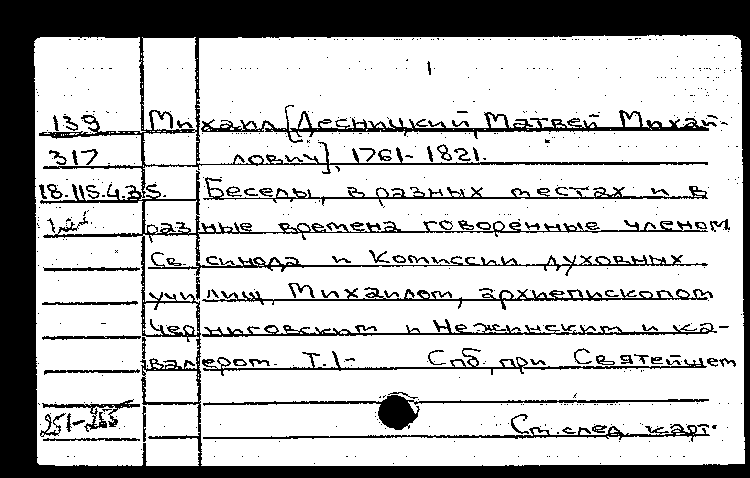 1
139 Михаил [Десницкий, Матвей Михай-
317 лович], 1761-1821.
18.115.4.35. Беседы, в разных местах и в
разные времена говоренные членом
Св синода и Комиссии духовных
училищ, Михаилом, архиепископом
Черниговским и Нежинским и ка-
валером. Т.1- Спб, при Святейшем
251-255 См. след. карт.